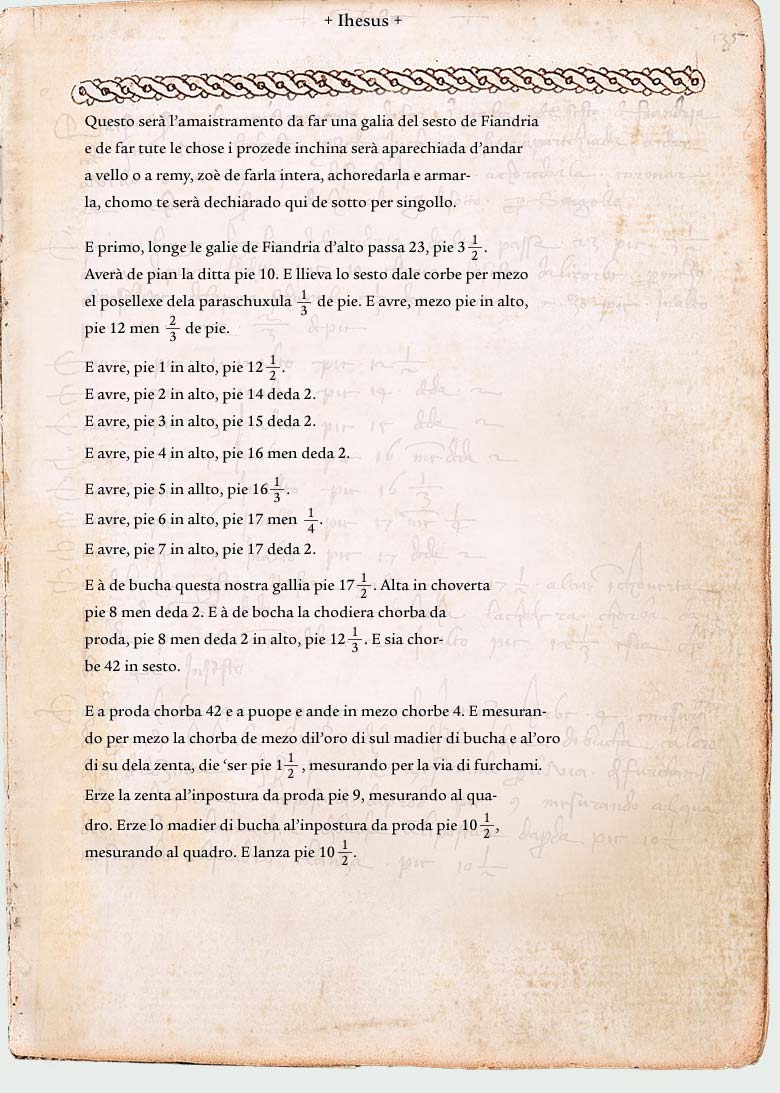 + Ihesus +
135
Questo serà l'amaistramento da far una galia del sesto de Fiandria
e de far tute le chose i prozede inchina serà aparechiada d'andar
a vello o a remy, zoè de farla intera, achoredarla e armar-
la, chomo te serà dechiarado qui de sotto per singollo.
E primo, longe le galie de Fiandria d'alto passa 23, pie 3 1/2.
Averà de pian la ditta pie 10. E llieva lo sesto dale corbe per mezo
el posellexe dela paraschuxula 1/3 de pie. E avre, mezo pie in alto,
pie 12 men 2/3 de pie.
E avre, pie 1 in alto, pie 12 1/2.
E avre, pie 2 in alto, pie 14 deda 2.
E avre, pie 3 in alto, pie 15 deda 2.
E avre, pie 4 in alto, pie 16 men deda 2.
E avre, pie 5 in allto, pie 16 1/3.
E avre, pie 6 in alto, pie 17 men 1/4.
E avre, pie 7 in alto, pie 17 deda 2.
E à de bucha questa nostra gallia pie 17 1/2. Alta in choverta
pie 8 men deda 2. E à de bocha la chodiera chorba da
proda, pie 8 men deda 2 in alto, pie 12 1/3. E sia chor-
be 42 in sesto.
E a proda chorba 42 e a puope e ande in mezo chorbe 4. E mesuran-
do per mezo la chorba de mezo dil'oro di sul madier di bucha e al'oro
di su dela zenta, die 'ser pie 1 1/2, mesurando per la via di furchami.
Erze la zenta al'inpostura da proda pie 9, mesurando al qua-
dro. Erze lo madier di bucha al'inpostura da proda pie 10 1/2,
mesurando al quadro. E lanza pie 10 1/2.